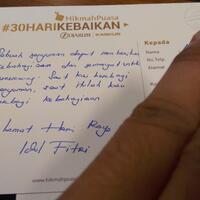 HikmahPuasa
#30HARIKEBAIKAN
DJARUM
Kepada
Nama
No.Telp.
Alamat
Sebuah senyuman dapat memberikan
kebahagiaan dan semangat untuk
seseorang. Saat kau berbagi
senyuman, saat itulah kau
berbagi kebahagiaan
Selamat Hari Raya
Idul Fitri
www.hikmahpuasa